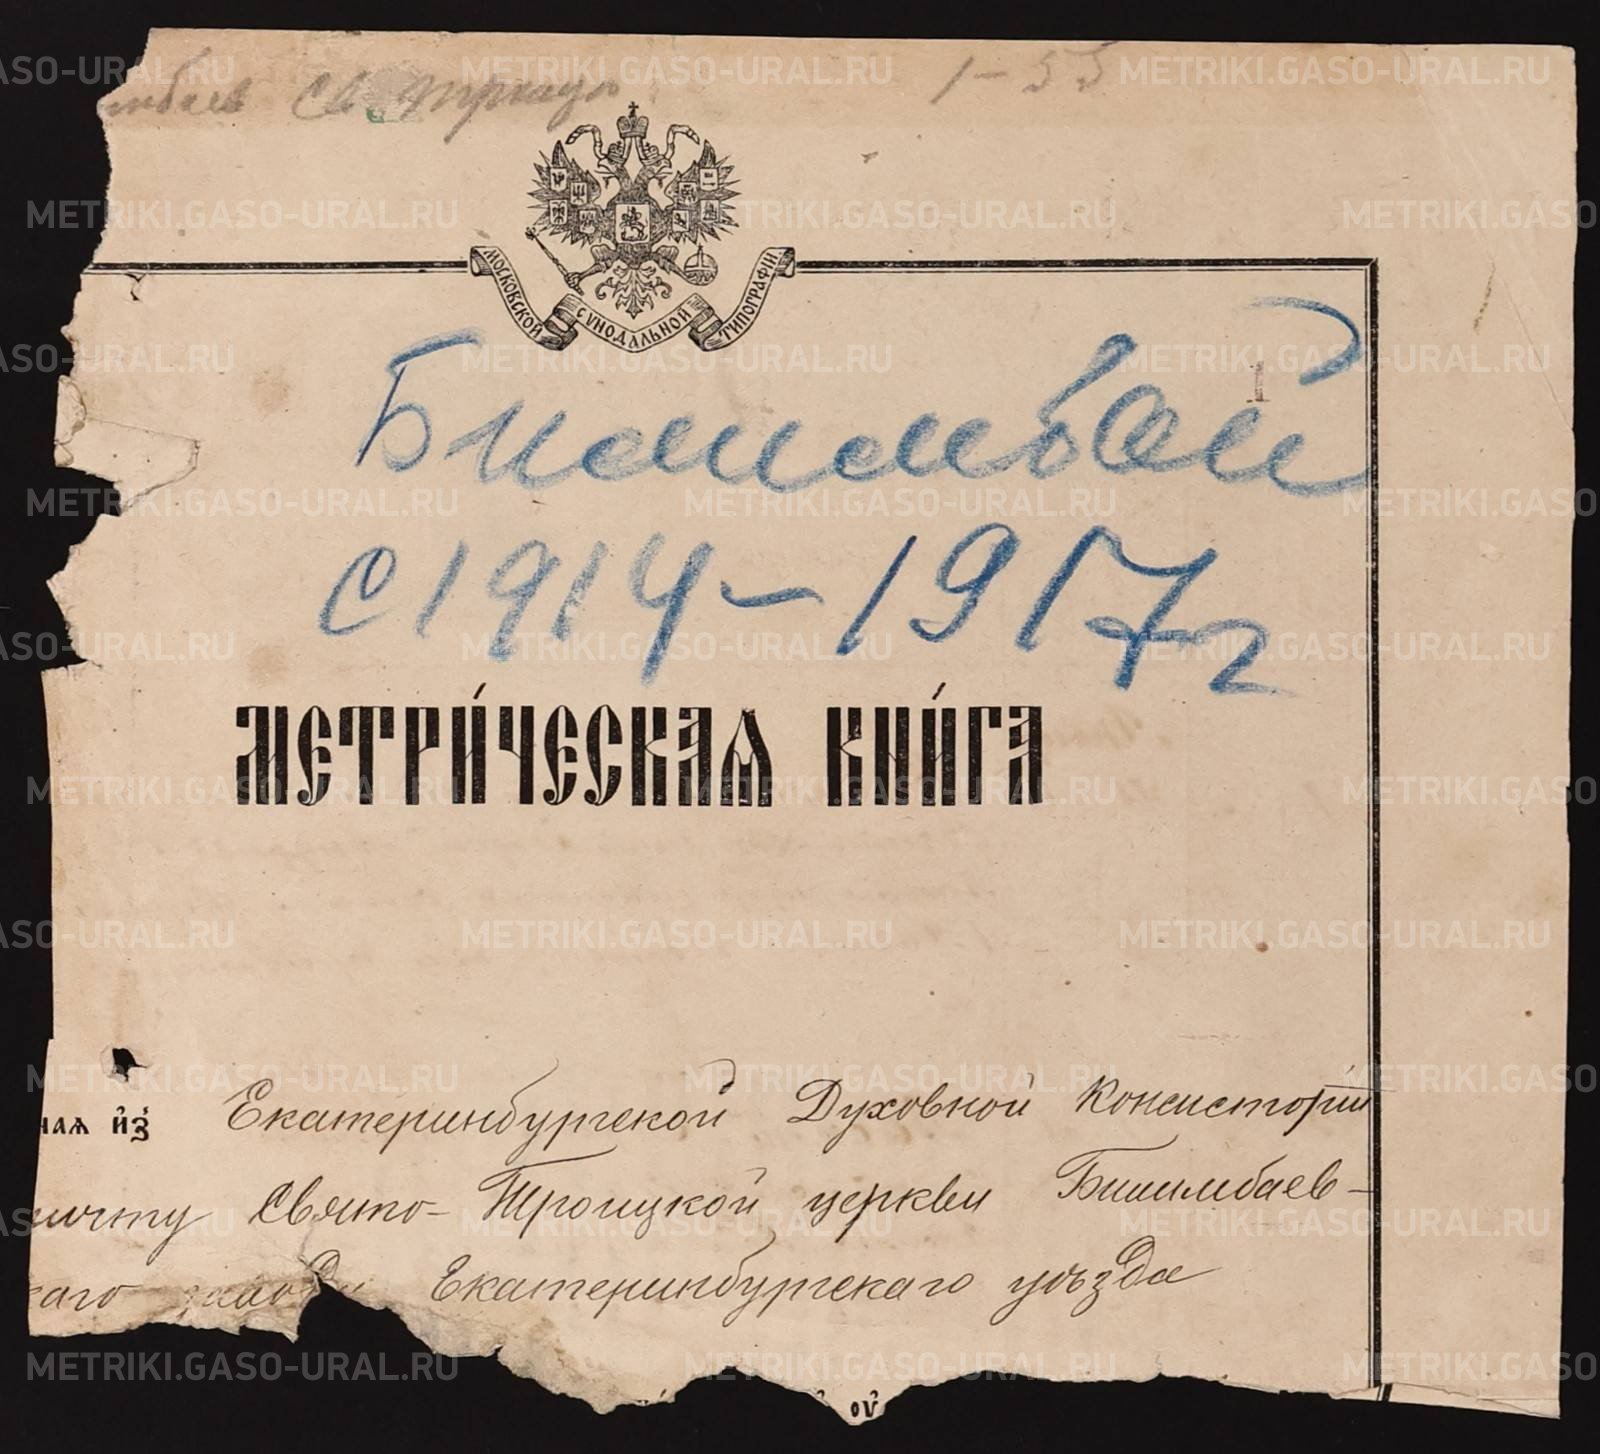 1-55
МОСКОВСКОЙ СѴНОДАЛЬНОЙ ТИПОГРАФІИ
1
Билимбай
с 1914-1917г
МЕТРИ́ЧЕСКАѦ КНИ́ГА
наѧ и҆з̾ Екатеринбургской Духовной Консисторіи
причту Свято-Троицкой церкви Билимбаев-
скаго завода Екатеринбургскаго уѣзда
METRIKI.GASO-URAL.RU